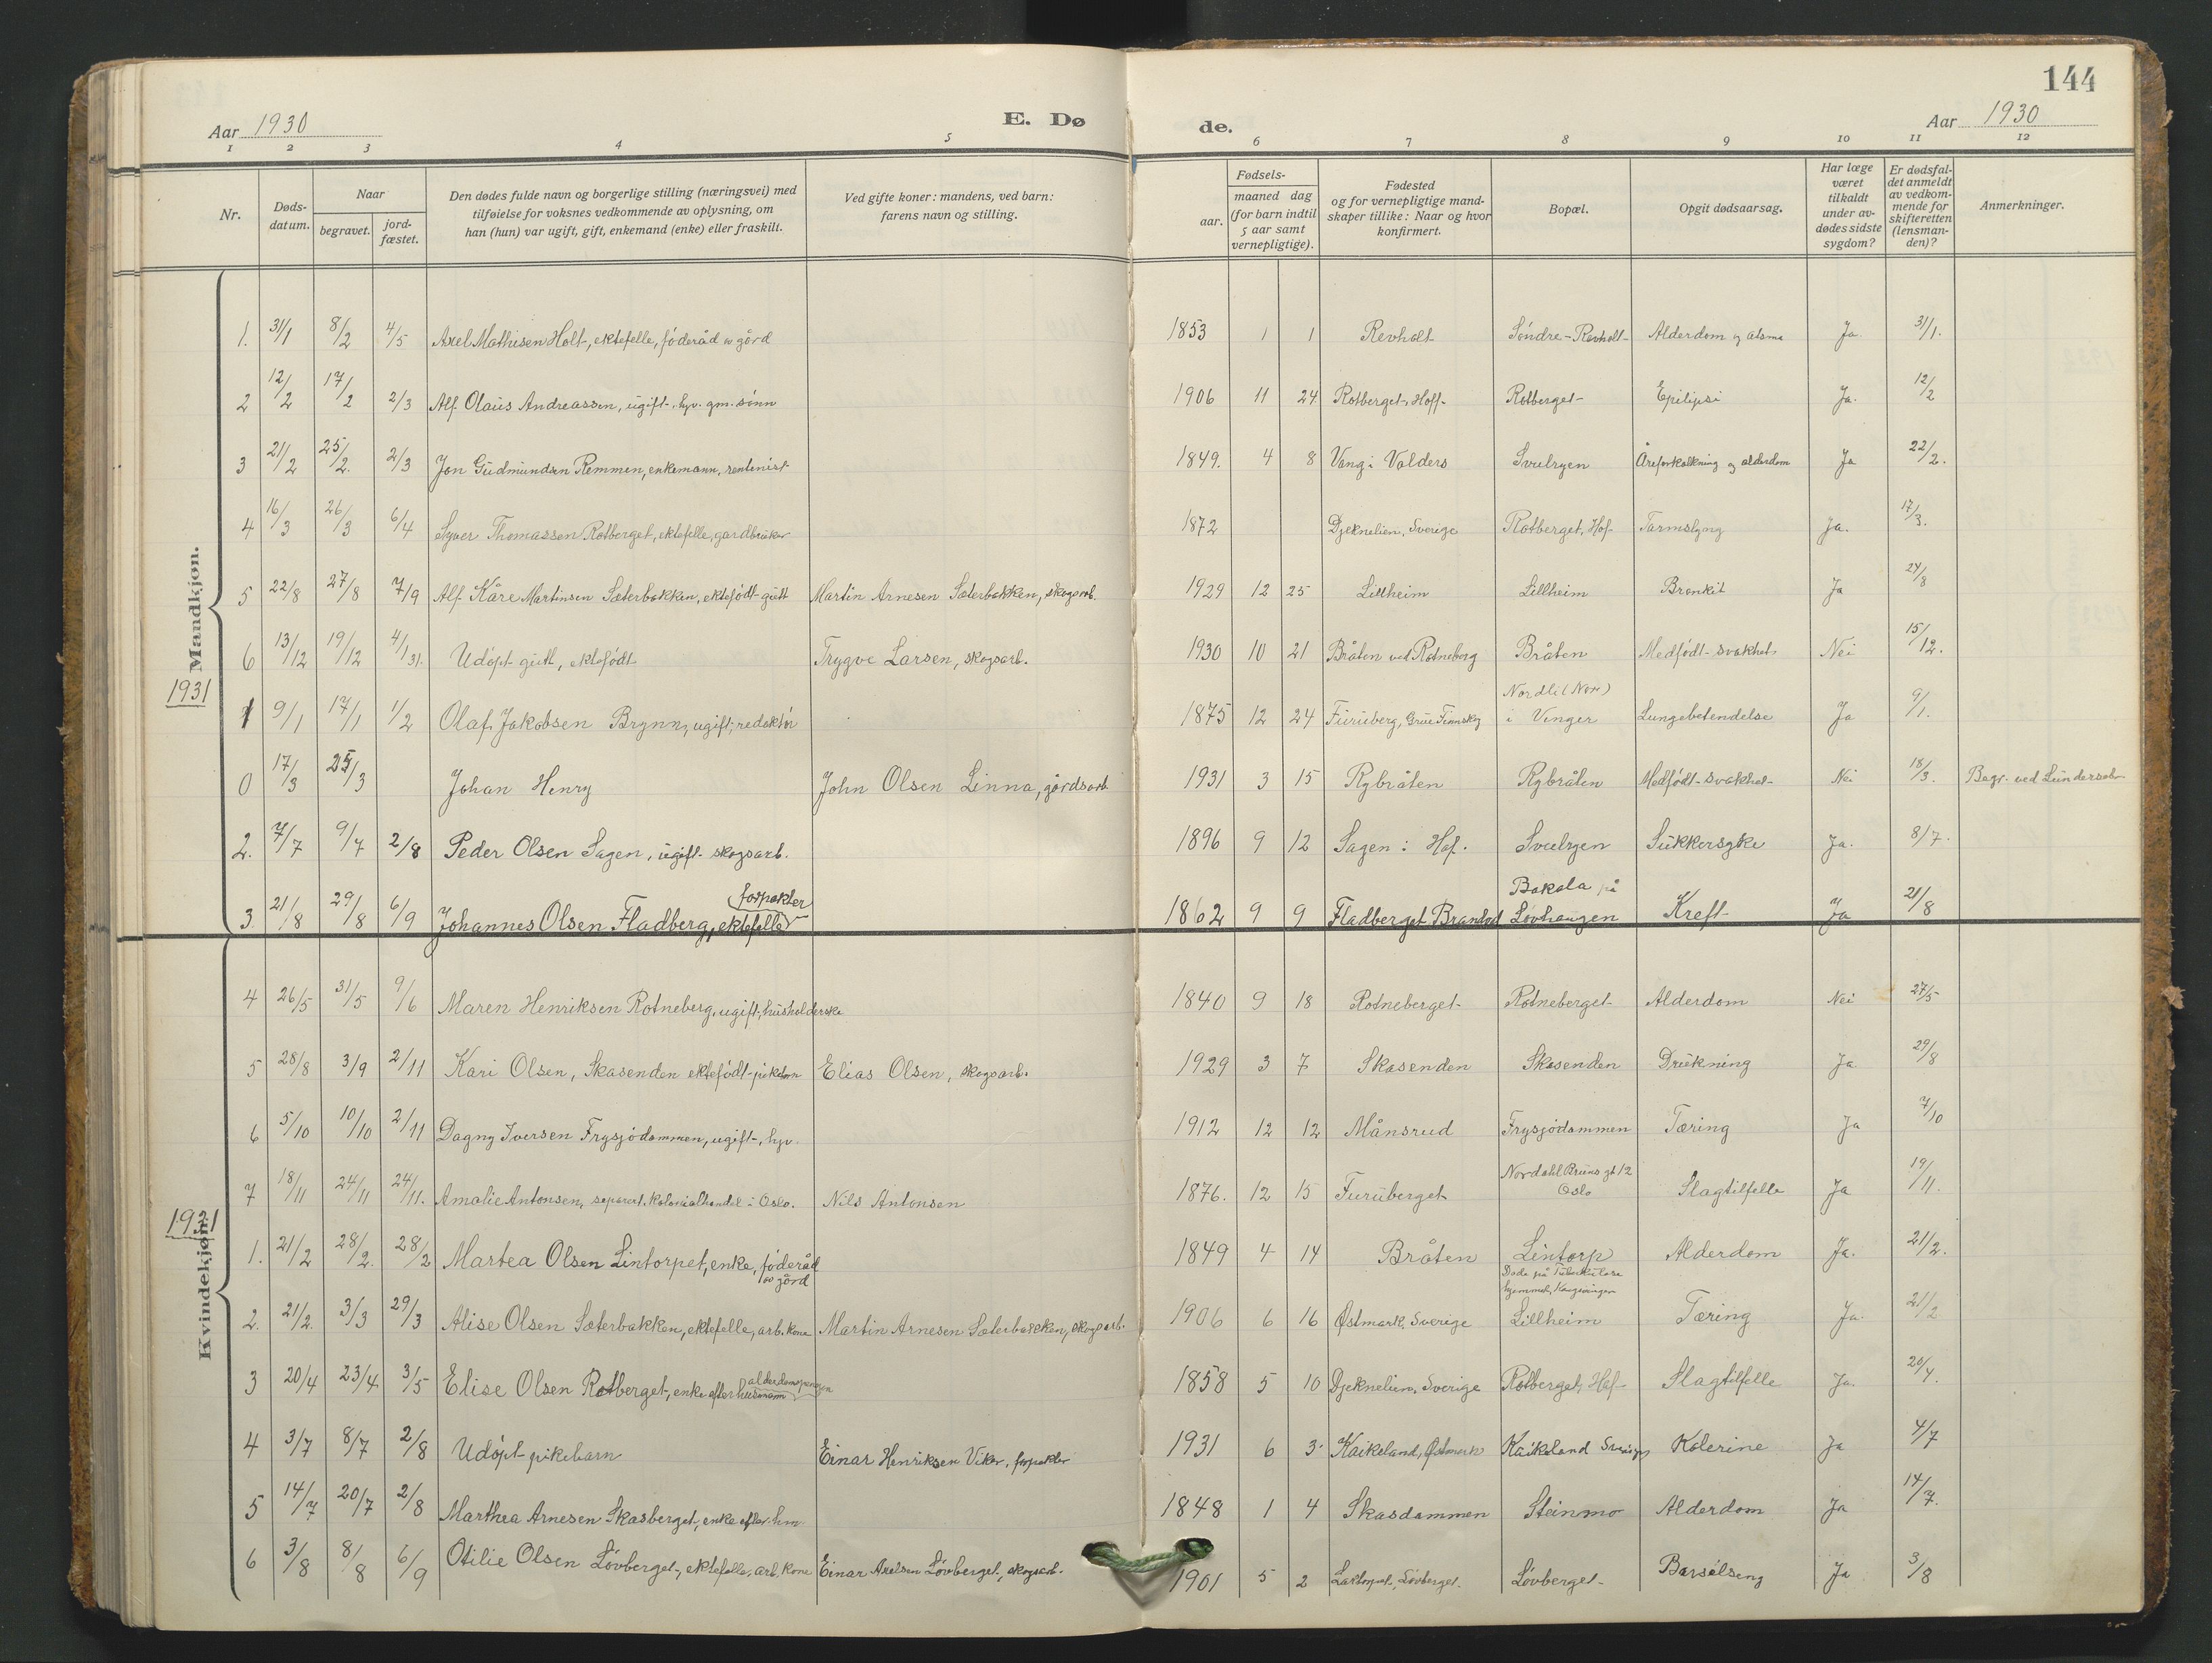 144
Aar 1930
E. Dø
de.
Aar 1930
1 2 3 4 5 6 7 8 9 10 11 12
Nr.
Døds-
datum.
Naar
begravet.
jord-
fæstet.
Den dødes fulde navn og borgerlige stilling (næringsvei) med
tilføielse for voksnes vedkommende av oplysning, om
han (hun) var ugift, gift, enkemand (enke) eller fraskilt.
Ved gifte koner: mandens, ved barn:
farens navn og stilling.
Fødsels-
aar.
maaned dag
(for barn indtil
5 aar samt
vernepligtige).
Fødested
og for vernepligtige mand-
skaper tillike: Naar og hvor
konfirmert.
Bopæl.
Opgit dødsaarsag.
Har læge
været
tilkaldt
under av-
dødes sidste
sygdom?
Er dødsfal-
det anmeldt
av vedkom-
mende for
skifteretten
(lensman-
den)?
Anmerkninger.
Mandkjøn.
1. 31/1 8/2 4/5 Axel Mathisen Holt, ektefelle, føderåd av gård 1853 1 1 Revholt Søndre-Revholt Alderdom og astma Ja 31/1.
2 12/2 17/2 2/3 Alf Olaus Andreassen, ugift, hjv. gm. sønn 1906 11 24 Rotberget, Hoff Rotberget Epilepsi Ja. 12/2
3 21/2 25/2. 2/3 Jon Gudmundsen Remmen, enkemann, rentenist 1849. 4 8 Vang i Valders Svulryen Åreforkalkning og alderdom Ja 22/2.
4 16/3 26/3 6/4 Syver Thomassen Rotberget, ektefelle, gardbruker 1872 Djeknelien, Sverige Rotberget, Hof Tarmslyng Ja. 17/3.
5 22/8 27/8 7/9 Alf Kåre Martinsen Sæterbakken, ektefødt gutt Martin Arnesen Sæterbakken, skogsarb. 1929 12 25 Lillheim Lillheim Bronkit Ja 24/8
6 13/12 19/12 4/1 31. Udøpt gutt, ektefødt Trygve Larsen, skogsarb. 1930 10 21 Bråten ved Rotneberg Bråten Medfødt svakhet Nei 15/12.
1931
Nordli (Nor)
1 9/1 17/1 1/2 Olaf Jakobsen Brynn, ugift, redaktør 1875 12 24 Furuberg, Grue Finnskog i Vinger Lungebetendelse Ja 9/1.
0 17/3 25/3 Johan Henry John Olsen Linna, gårdsarb. 1931 3 15 Rybråten Rybråten Medfødt svakhet Nei 18/3. Begr. ved Lundersæter
2. 7/7 9/7 2/8 Peder Olsen Sagen, ugift skogsarb. 1896 9 12 Sagen i Hof. Svulryen Sukkersyke Ja. 8/7.
forpakter
Bakala på
3. 21/8 29/8 6/9 Johannes Olsen Fladberg, ektefelle 1862 9 9 Fladberget Brandvd Løvhaugen Kreft Ja 21/8
4 26/5 31/5 9/6 Maren Henriksen Rotneberg, ugift, husholderske 1840 9 18 Rotneberget Rotneberget Alderdom Nei 27/5
5 28/8 3/9 2/11 Kari Olsen, Skasenden ektefødt pikebarn Elias Olsen, skogsarb. 1929 3 7 Skasenden Skasenden Drukning Ja 29/8
6 5/10 10/10 2/11 Dagny Iversen Frysjødammen, ugift, hjv. 1912 12 12 Månsrud Frysjødammen Tæring Ja 7/10
Nordahl Bruns gt 12
Oslo
7 18/11 24/11 24/11. Amalie Antonsen, separert. kolonialhandel i Oslo. Nils Antonsen 1876. 12 15 Furuberget Slagtilfelle Ja 19/11.
1931
Kvindekjøn.
1. 21/2 28/2. 28/2 Martea Olsen Lintorpet, enke, føderåd 1849 4 14 Bråten Lintorp Alderdom Ja. 21/2.
av gård
Døde på Tuberkulose
hjemmet, Kongsvinger
2. 21/2. 3/3 29/3 Alise Olsen Sæterbakken, ektefelle, arb. kone Martin Arnesen Sæterbakken, skogsarb. 1906 6 16 Østmark, Sverige Lillheim Tæring Ja. 21/2
alderdomspensjon
3 20/4 23/4 3/5 Elise Olsen Rotberget, enke efter husmann 1858 5 10 Djeknelien, Sverige Rotberget, Hof Slagtilfelle Ja. 20/4.
4 3/7 8/7 2/8 Udøpt pikebarn Einar Henriksen Viker, forpakter 1931 6 3 Kaikeland, Østmark Kaikeland Sverige Kolerine Ja 4/7
5 14/7 20/7 2/8 Marthea Arnesen Skasberget, enke efter hm. 1848 1 4 Skasdammen Steinmo Alderdom Ja 14/7.
6 3/8 8/8 6/9 Otilie Olsen Løvberget, ektefelle, arb. kone Einar Axelsen Løvberget, skogsarb. 1901 5 2 Løvberget Løvberget Barselseng Ja 3/8